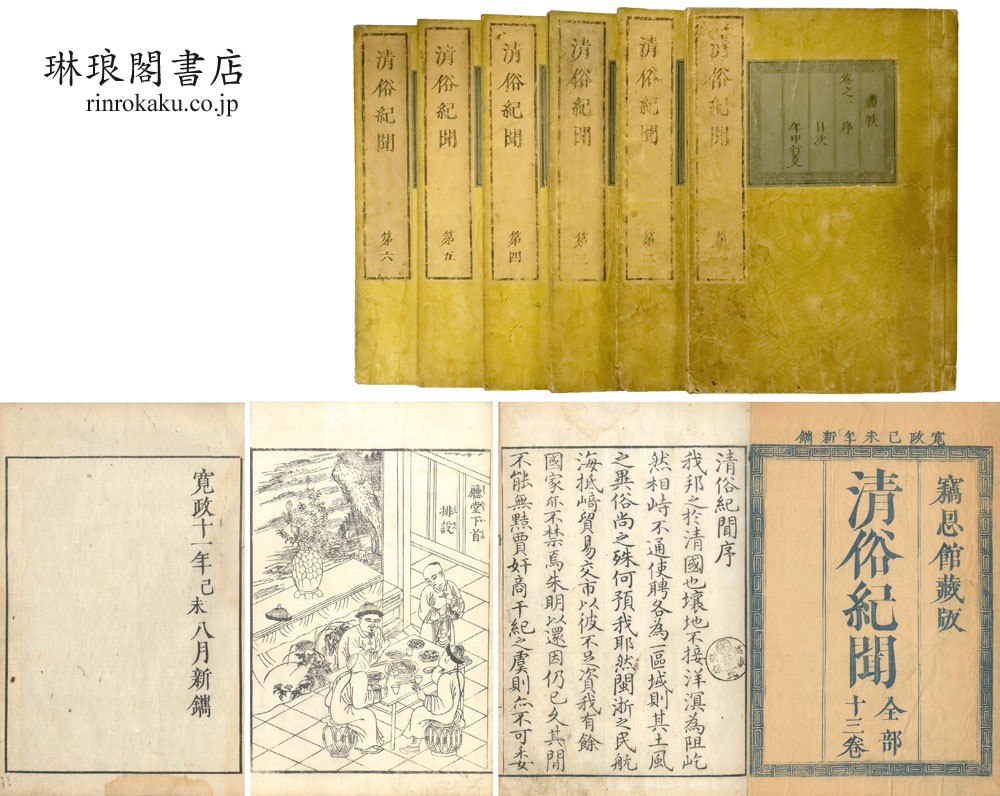 琳琅閣書店
rinrokaku.co.jp
清俗紀聞 第六
清俗紀聞 第五
清俗紀聞 第四
清俗紀聞 第三
清俗紀聞 第二
清俗紀聞 第一
卷之一 序
目次
年中行事
寛政己未年新鐫
竊恩館藏版
清俗紀聞 全部十三卷
清俗紀聞序
我邦之於清國也壤地不接洋溟為阻屹
然相峙不通使聘各為一區域則其土風
之異俗尚之殊何預我耶然閩浙之民航
海抵﨑貿易交市以彼不足資我有餘
國家亦不禁焉朱明以還因仍已久其間
不能無黠賈奸商干紀之虞則亦不可委
廳堂下首
排設
寛政十一年己未八月新鐫